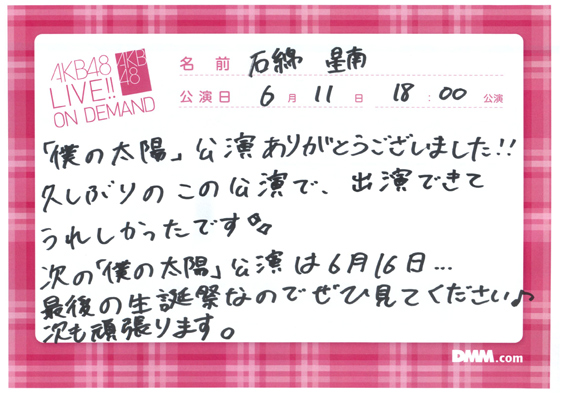 AKB48
LIVE!!
ON DEMAND
AKB
48
名前 石綿 星南
公演日 6月11日 18:00 公演
「僕の太陽」公演ありがとうございました!!
久しぶりのこの公演で、出演できて
うれしかったです
次の「僕の太陽」公演は6月16日...
最後の生誕祭なのでぜひ見てください♪
次も頑張ります。
DMM.com